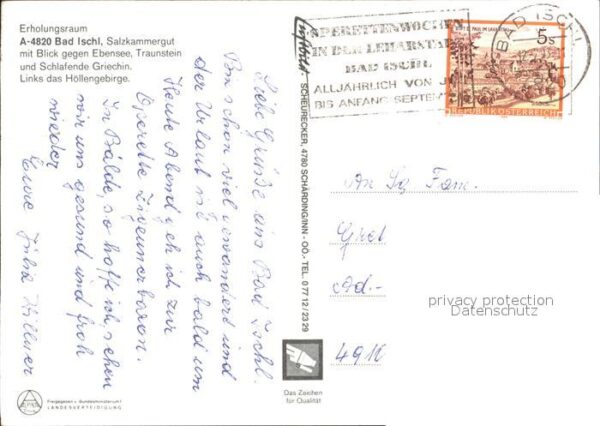 Erholungsraum
A-4820 Bad Ischl, Salzkammergut
mit Blick gegen Ebensee, Traunstein
und Schlafende Griechin.
Links das Höllengebirge.
Liebe Grüße aus Bad Ischl.
Bin schon viel gewandert und
der Urlaub ist auch bald um
Heute Abend geh ich zur
Operette Zigeunerbaron.
In Bälde, so hoffe ich, sehen
wir uns gesund und froh
wieder
Eure
Freigegeben v. Bundesministerium f.
LANDESVERTEIDIGUNG
SCHEURECKER, 4780 SCHÄRDING/INN - OÖ,- TEL. 0 77 12 / 23 29
Das Zeichen
für Qualität
OPERETTENWOCHEN
IN DER LEHARSTADT
BAD ISCHL
ALLJÄHRLICH VON J
BIS ANFANG SEPTEM
BAD ISCHL
5s
REPUBLIK ÖSTERREICH
An Fam.
491
privacy protection
Datenschutz